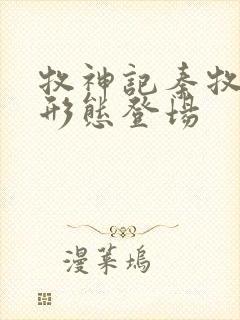 牧神記秦牧
形態登場
漫菜塢